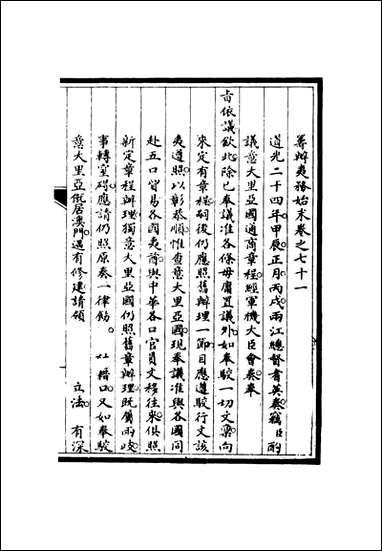 籌辦夷務始末卷之七十一
道光二十四年甲辰正月丙戌兩江總督耆英奏竊臣酌
議意大里亞國通商章程經軍機大臣會奏奉
旨依議欽此除已奉議准各條毋庸置議外如奉駁一切文稟向
來定有章程嗣後仍應照舊辦理一節自應遵駁行文該
夷遵照以彰恭順惟查意大里亞國現奉議准與各國同
赴五口貿易各國夷酋與中華各口官員文移往來俱照
新定章程辦理獨意大里亞國仍照舊章辦理既屬兩歧
事轉窒礙應請仍照原奏一律飭 以藉口又如奉駁
意大里亞僦居澳門遇有修建請領 立法 有深